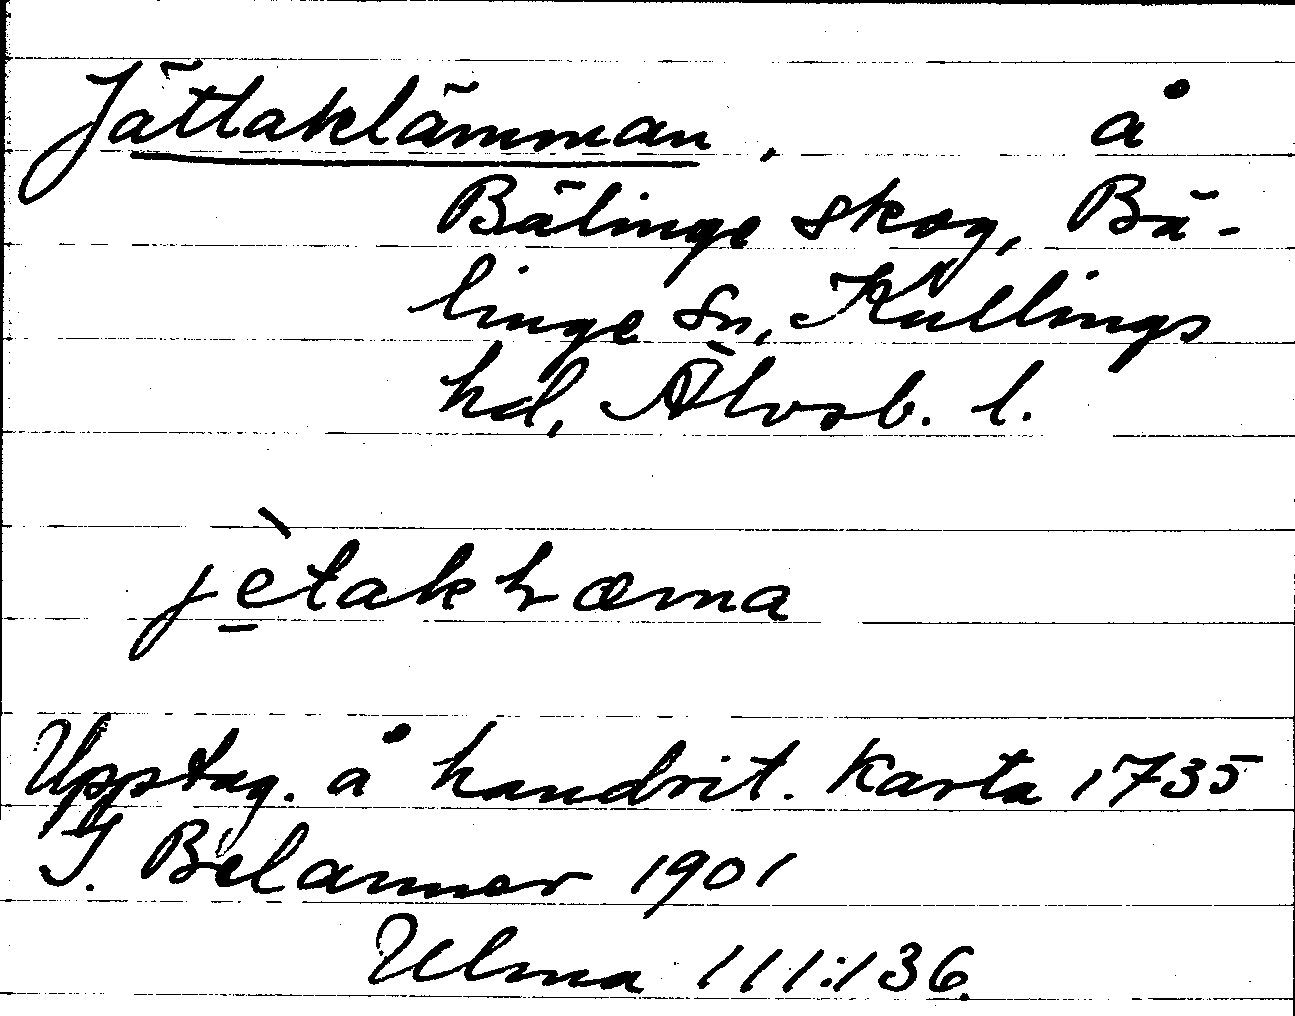 Jättaklämman, å
Bälinge skog, Bä-
linge sn, Kullings
hd, Älvsb. l.
jètakḷæma
Upptag. å handrit. karta 1735
J. Belanner 1901
Ulma 111:136.